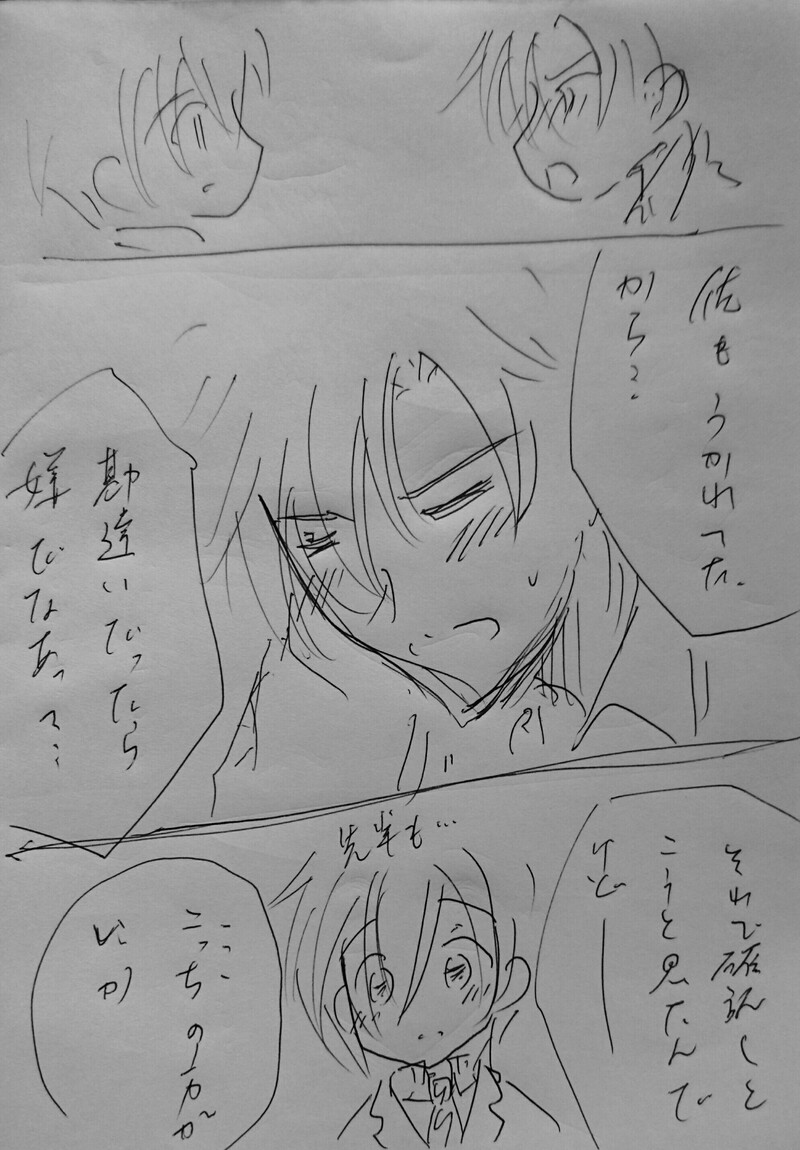 俺もうかれてた
から…
勘違いだったら
嫌だなあって…
それで確認しと
こうと思ったんで
けど
先輩も…
こっちの方が
いか